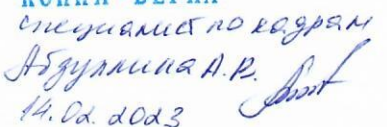 КОПИЯ ВЕРНА
специалист по кадрам
Абдуллина А.В.
14.02.2023